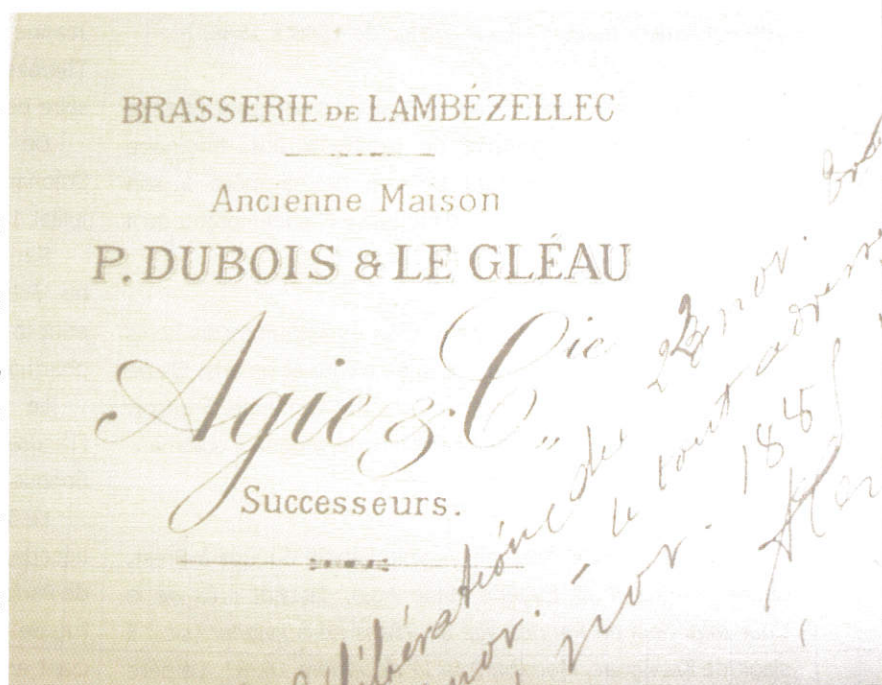 BRASSERIE DE LAMBÉZELLEC
Ancienne Maison
P. DUBOIS & LE GLÉAU
Agie & Cie
Successeurs.
délibération du 23 nov.
le tout adressé
nov. 188
nov.